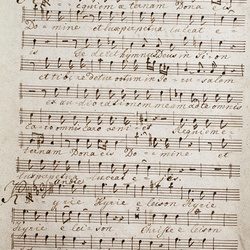 Requiem æternam Dona eis
Domine et lux perpetua luceat e
is Te decet hymnus Deus in Sion
et tibi redetur votum in Jerusalem
exaudi orationem meam ad te omnis
caro omnis caro veniet Requiem æ
ternam Dona eis Domine et
lux perpetua luceat eis.
Kyrie Kyrie eleison Kyrie
Kyrie eleison Christe eleison